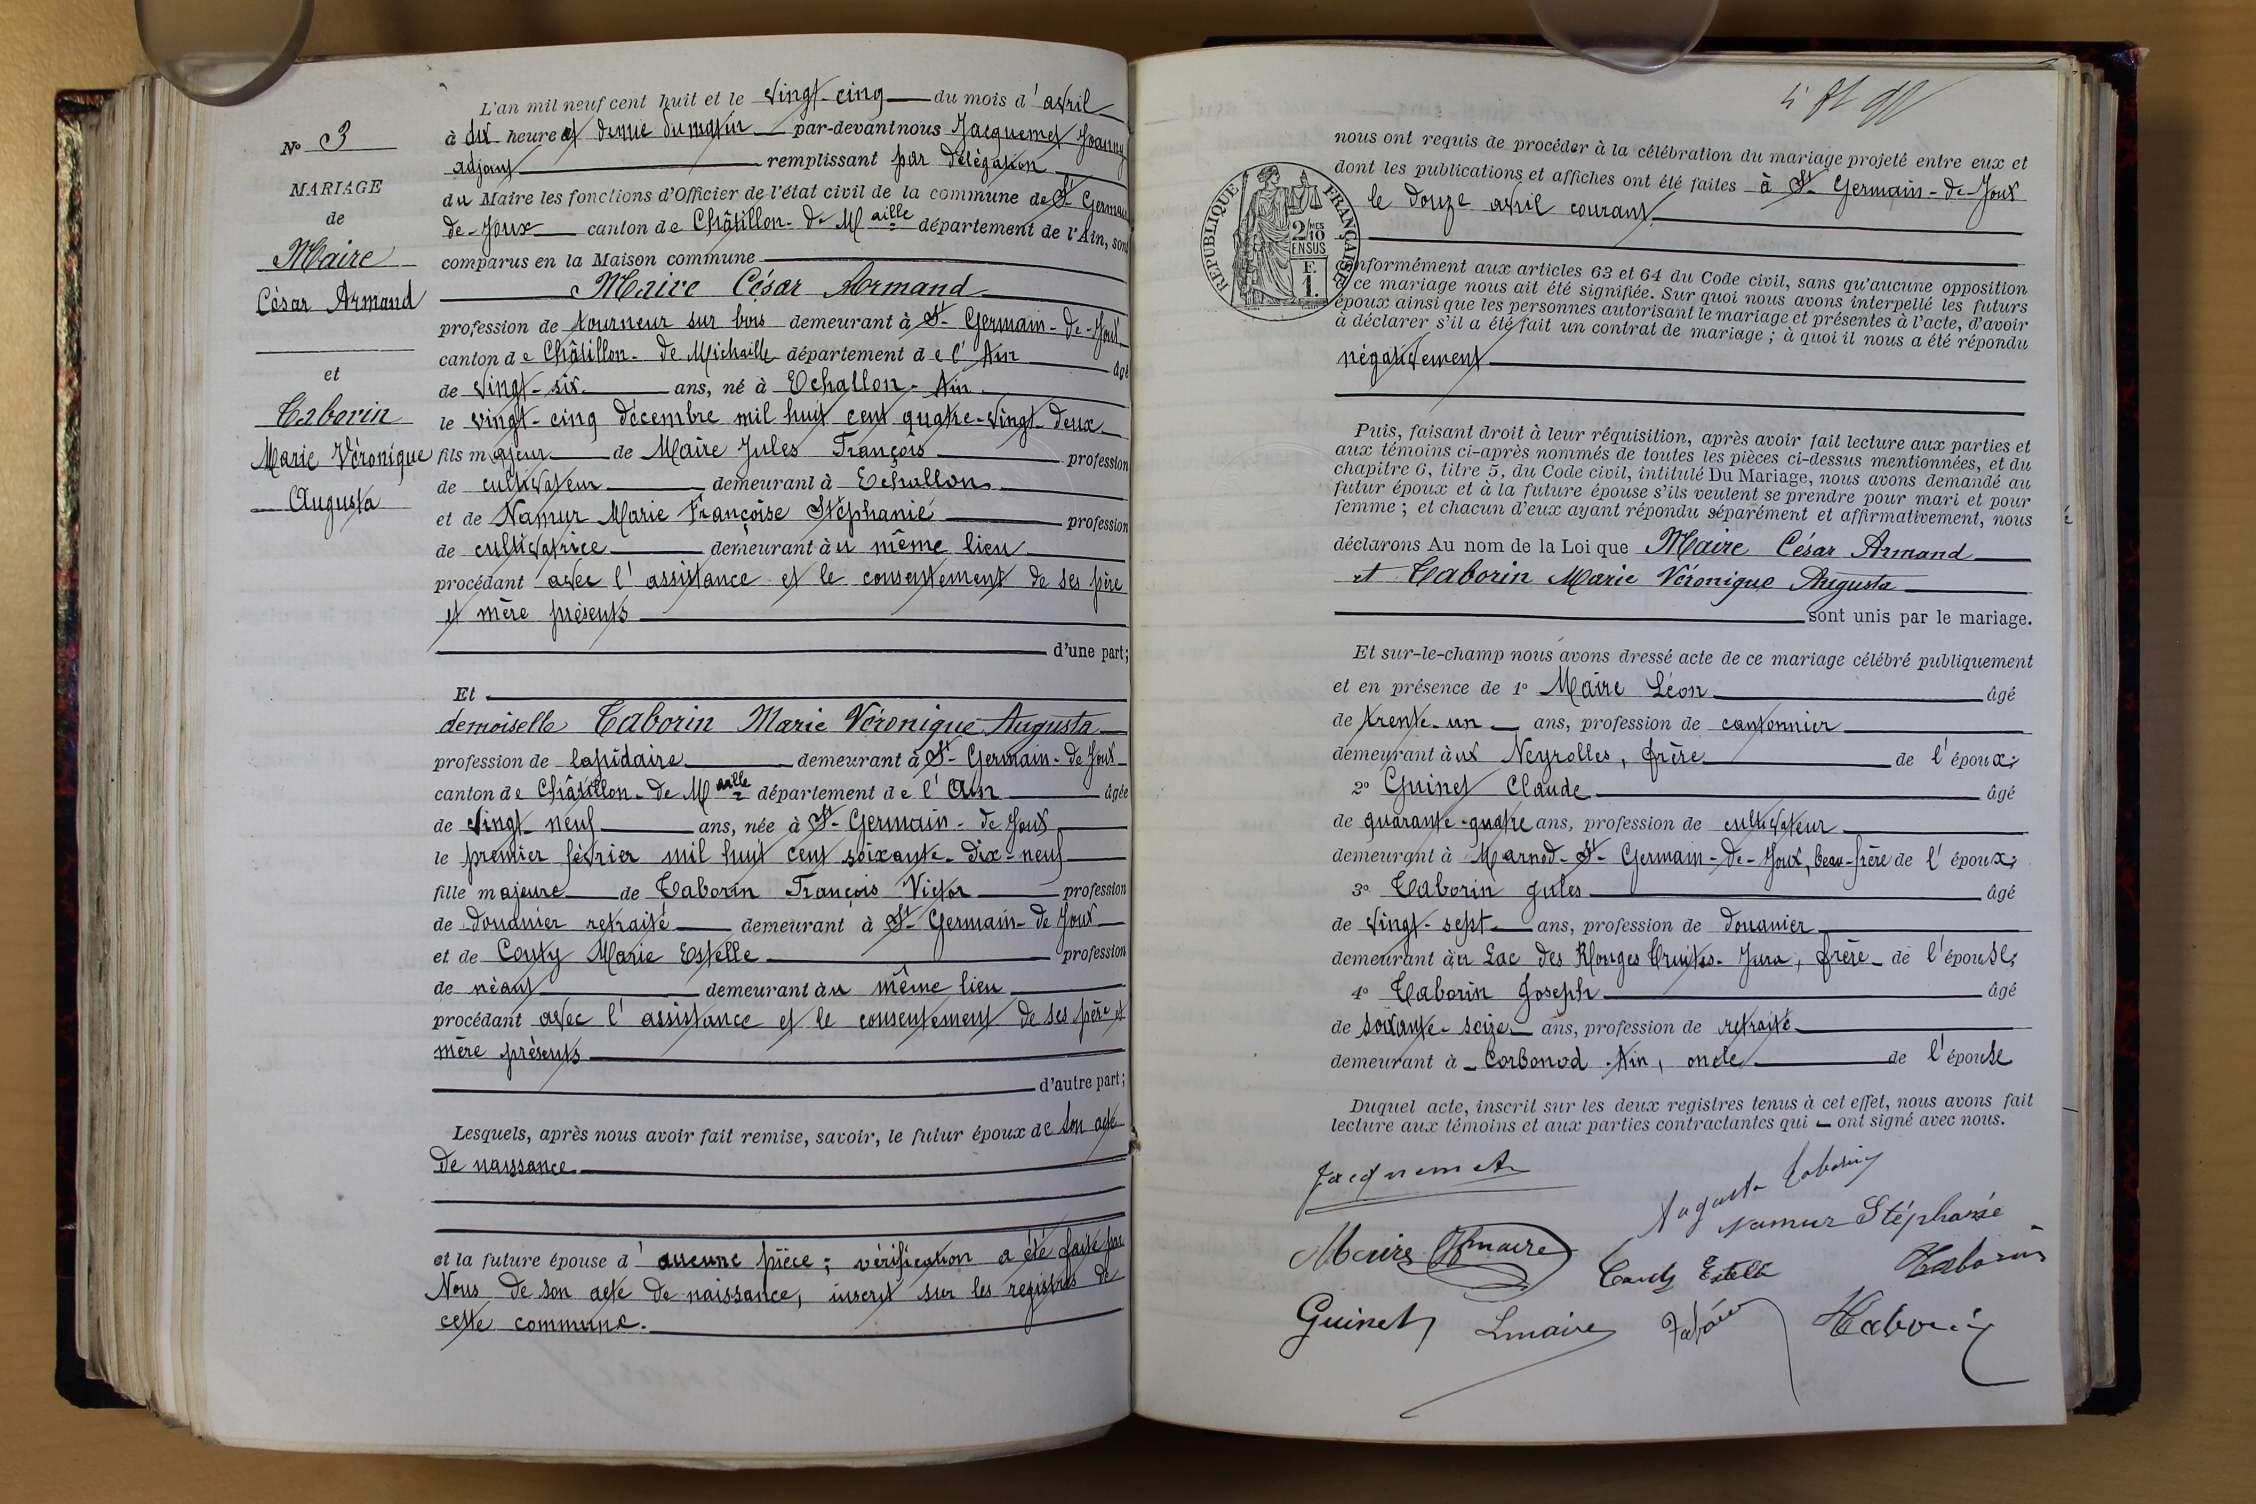 L'an mil neuf cent huit et le vingt-cinq du mois d'avril
à dix heure et demie du matin par-devant nous Jacquemet Joanny
adjoint remplissant par délégation
du Maire les fonctions d'Officier de l'état civil de la commune de St Germain
de-Joux canton de Châtillon-de-Maille département de l'Ain, sont
comparus en la Maison commune
Maire César Armand
profession de tourneur sur bois demeurant à St-Germain-de-Joux
canton de Châtillon-de Michaille département de l'Ain âgé
de vingt-six ans, né à Echallon-Ain
le vingt-cinq décembre mil huit cent quatre-vingt-deux
fils majeur de Maire Jules François profession
de cultivateur demeurant à Echallon
et de Namur Marie Françoise Stéphanie profession
de cultivatrice demeurant au même lieu
procédant avec l'assistance et le consentement de ses père
et mère présents
d'une part;
Et
demoiselle Taborin Marie Véronique Augusta
profession de lapidaire demeurant à St-Germain-de Joux
canton de Châtillon-de Maille département de l'Ain âgée
de vingt-neuf ans, née à St-Germain-de Joux
le premier février mil huit cent soixante-dix-neuf
fille majeure de Taborin François Victor profession
de douanier retraité demeurant à St-Germain-de Joux
et de Couty Marie Estelle profession
de néant demeurant au même lieu
procédant avec l'assistance et le consentement de ses père et
mère présents
d'autre part;
Lesquels, après nous avoir fait remise, savoir, le futur époux de son acte
de naissance
et la future épouse d'aucune pièce; vérification a été faite par
Nous de son acte de naissance, inscrit sur les registres de
cette commune.
No 3
MARIAGE
de
Maire
César Armand
et
Taborin
Marie Véronique
Augusta
nous ont requis de procéder à la célébration du mariage projeté entre eux et
dont les publications et affiches ont été faites à St-Germain-de-Joux
le douze avril courant
RÉPUBLIQUE FRANÇAISE
2/10 MES
EN SUS
F.
1.
conformément aux articles 63 et 64 du Code civil, sans qu'aucune opposition
à ce mariage nous ait été signifiée. Sur quoi nous avons interpellé les futurs
époux ainsi que les personnes autorisant le mariage et présentes à l'acte, d'avoir
à déclarer s'il a été fait un contrat de mariage; à quoi il nous a été répondu
négativement
Puis, faisant droit à leur réquisition, après avoir fait lecture aux parties et
aux témoins ci-après nommés de toutes les pièces ci-dessus mentionnées, et du
chapitre 6, titre 5, du Code civil, intitulé Du Mariage, nous avons demandé au
futur époux et à la future épouse s'ils veulent se prendre pour mari et pour
femme; et chacun d'eux ayant répondu séparément et affirmativement, nous
déclarons Au nom de la Loi que Maire César Armand
et Taborin Marie Véronique Augusta
sont unis par le mariage.
Et sur-le-champ nous avons dressé acte de ce mariage célébré publiquement
et en présence de 1° Maire Léon âgé
de trente-un ans, profession de cantonnier
demeurant aux Neyrolles, frère de l'époux;
2° Guinet Claude âgé
de quarante-quatre ans, profession de cultivateur
demeurant à Marnod-St-Germain-de-Joux, beau-frère de l'époux;
3° Taborin Jules âgé
de vingt-sept ans, profession de douanier
demeurant au Lac des Rouges Truites-Jura, frère de l'épouse;
4° Taborin Joseph âgé
de soixante-seize ans, profession de retraité
demeurant à Corbonod-Ain, oncle de l'épouse
Duquel acte, inscrit sur les deux registres tenus à cet effet, nous avons fait
lecture aux témoins et aux parties contractantes qui ont signé avec nous.
Jacquemet
Augusta Taborin
Namur Stéphanie
Maire Jfmaire
Couty Estelle
Taborin
Guinet Lmaire Taborin Taborin